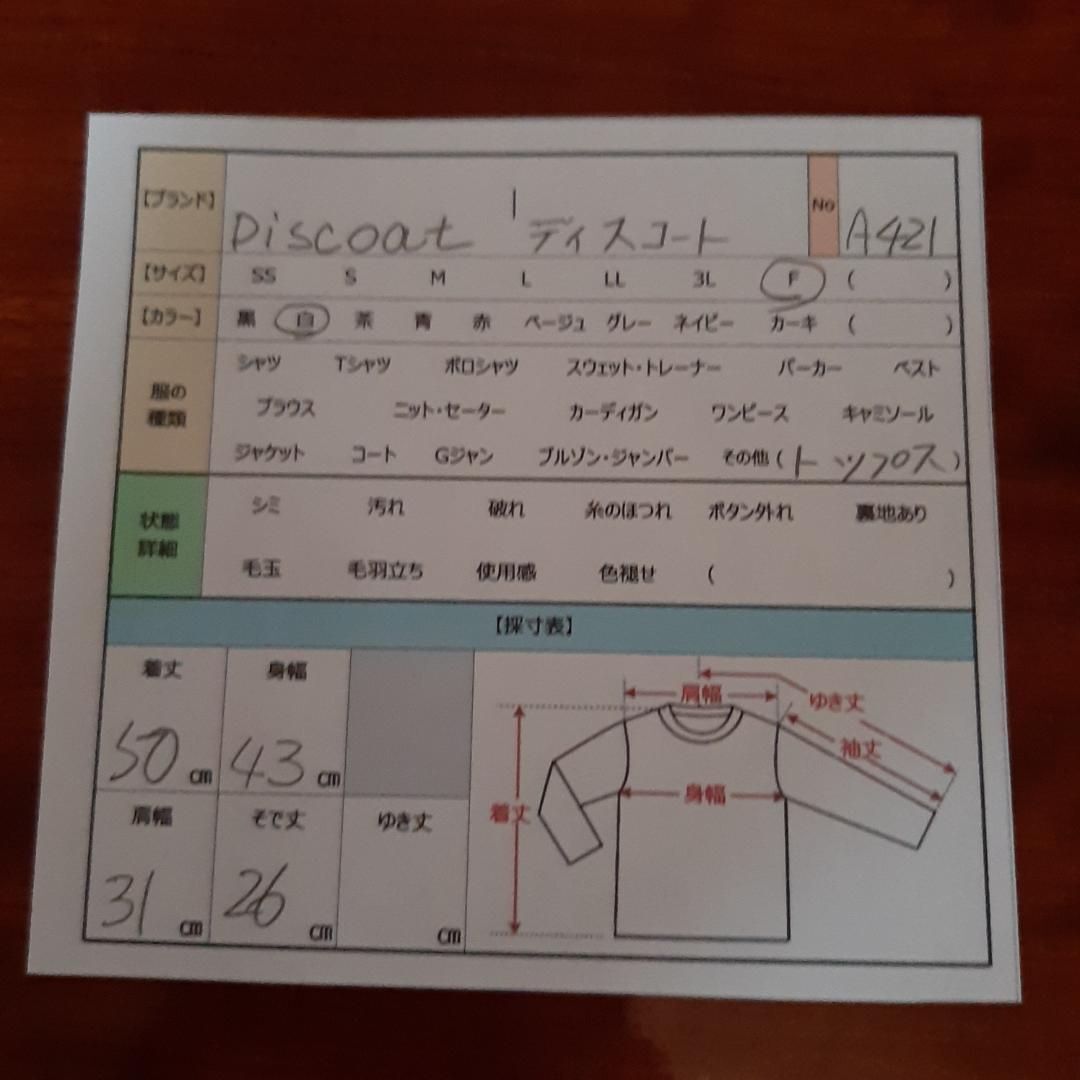 【ブランド】 Discoat ディスコート No A421
【サイズ】 SS S M L LL 3L F ( )
【カラー】 黒 白 茶 青 赤 ベージュ グレー ネイビー カーキ ( )
服の種類
シャツ Tシャツ ポロシャツ スウェット・トレーナー パーカー ベスト
ブラウス ニット・セーター カーディガン ワンピース キャミソール
ジャケット コート Gジャン ブルゾン・ジャンパー その他 (トップス)
状態詳細
シミ 汚れ 破れ 糸のほつれ ボタン外れ 裏地あり
毛玉 毛羽立ち 使用感 色褪せ ( )
【採寸表】
着丈 身幅
50 cm 43 cm
肩幅 そで丈 ゆき丈
31 cm 26 cm cm
肩幅
ゆき丈
袖丈
身幅
着丈